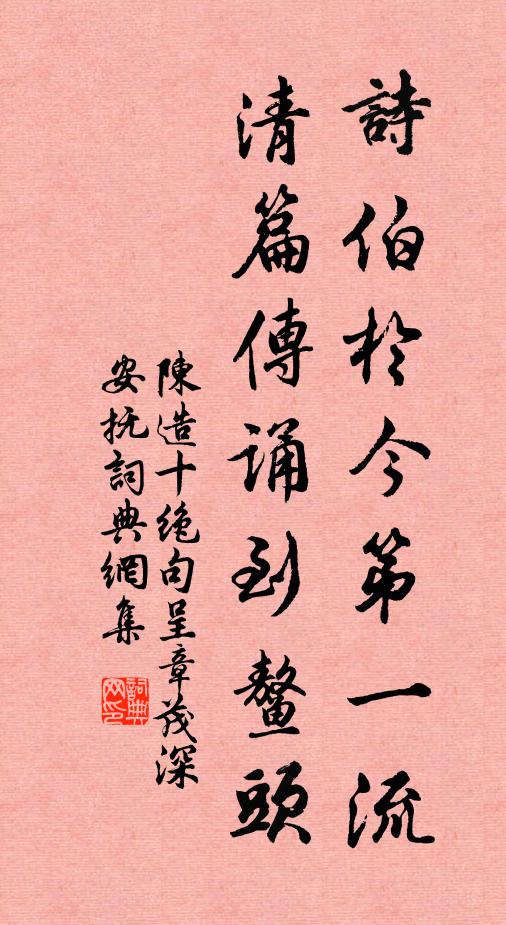 詩伯於今第一流
清篇傳誦到鰲頭
陳造十絶句呈章茂深
安抚詞典網集
詞典网印